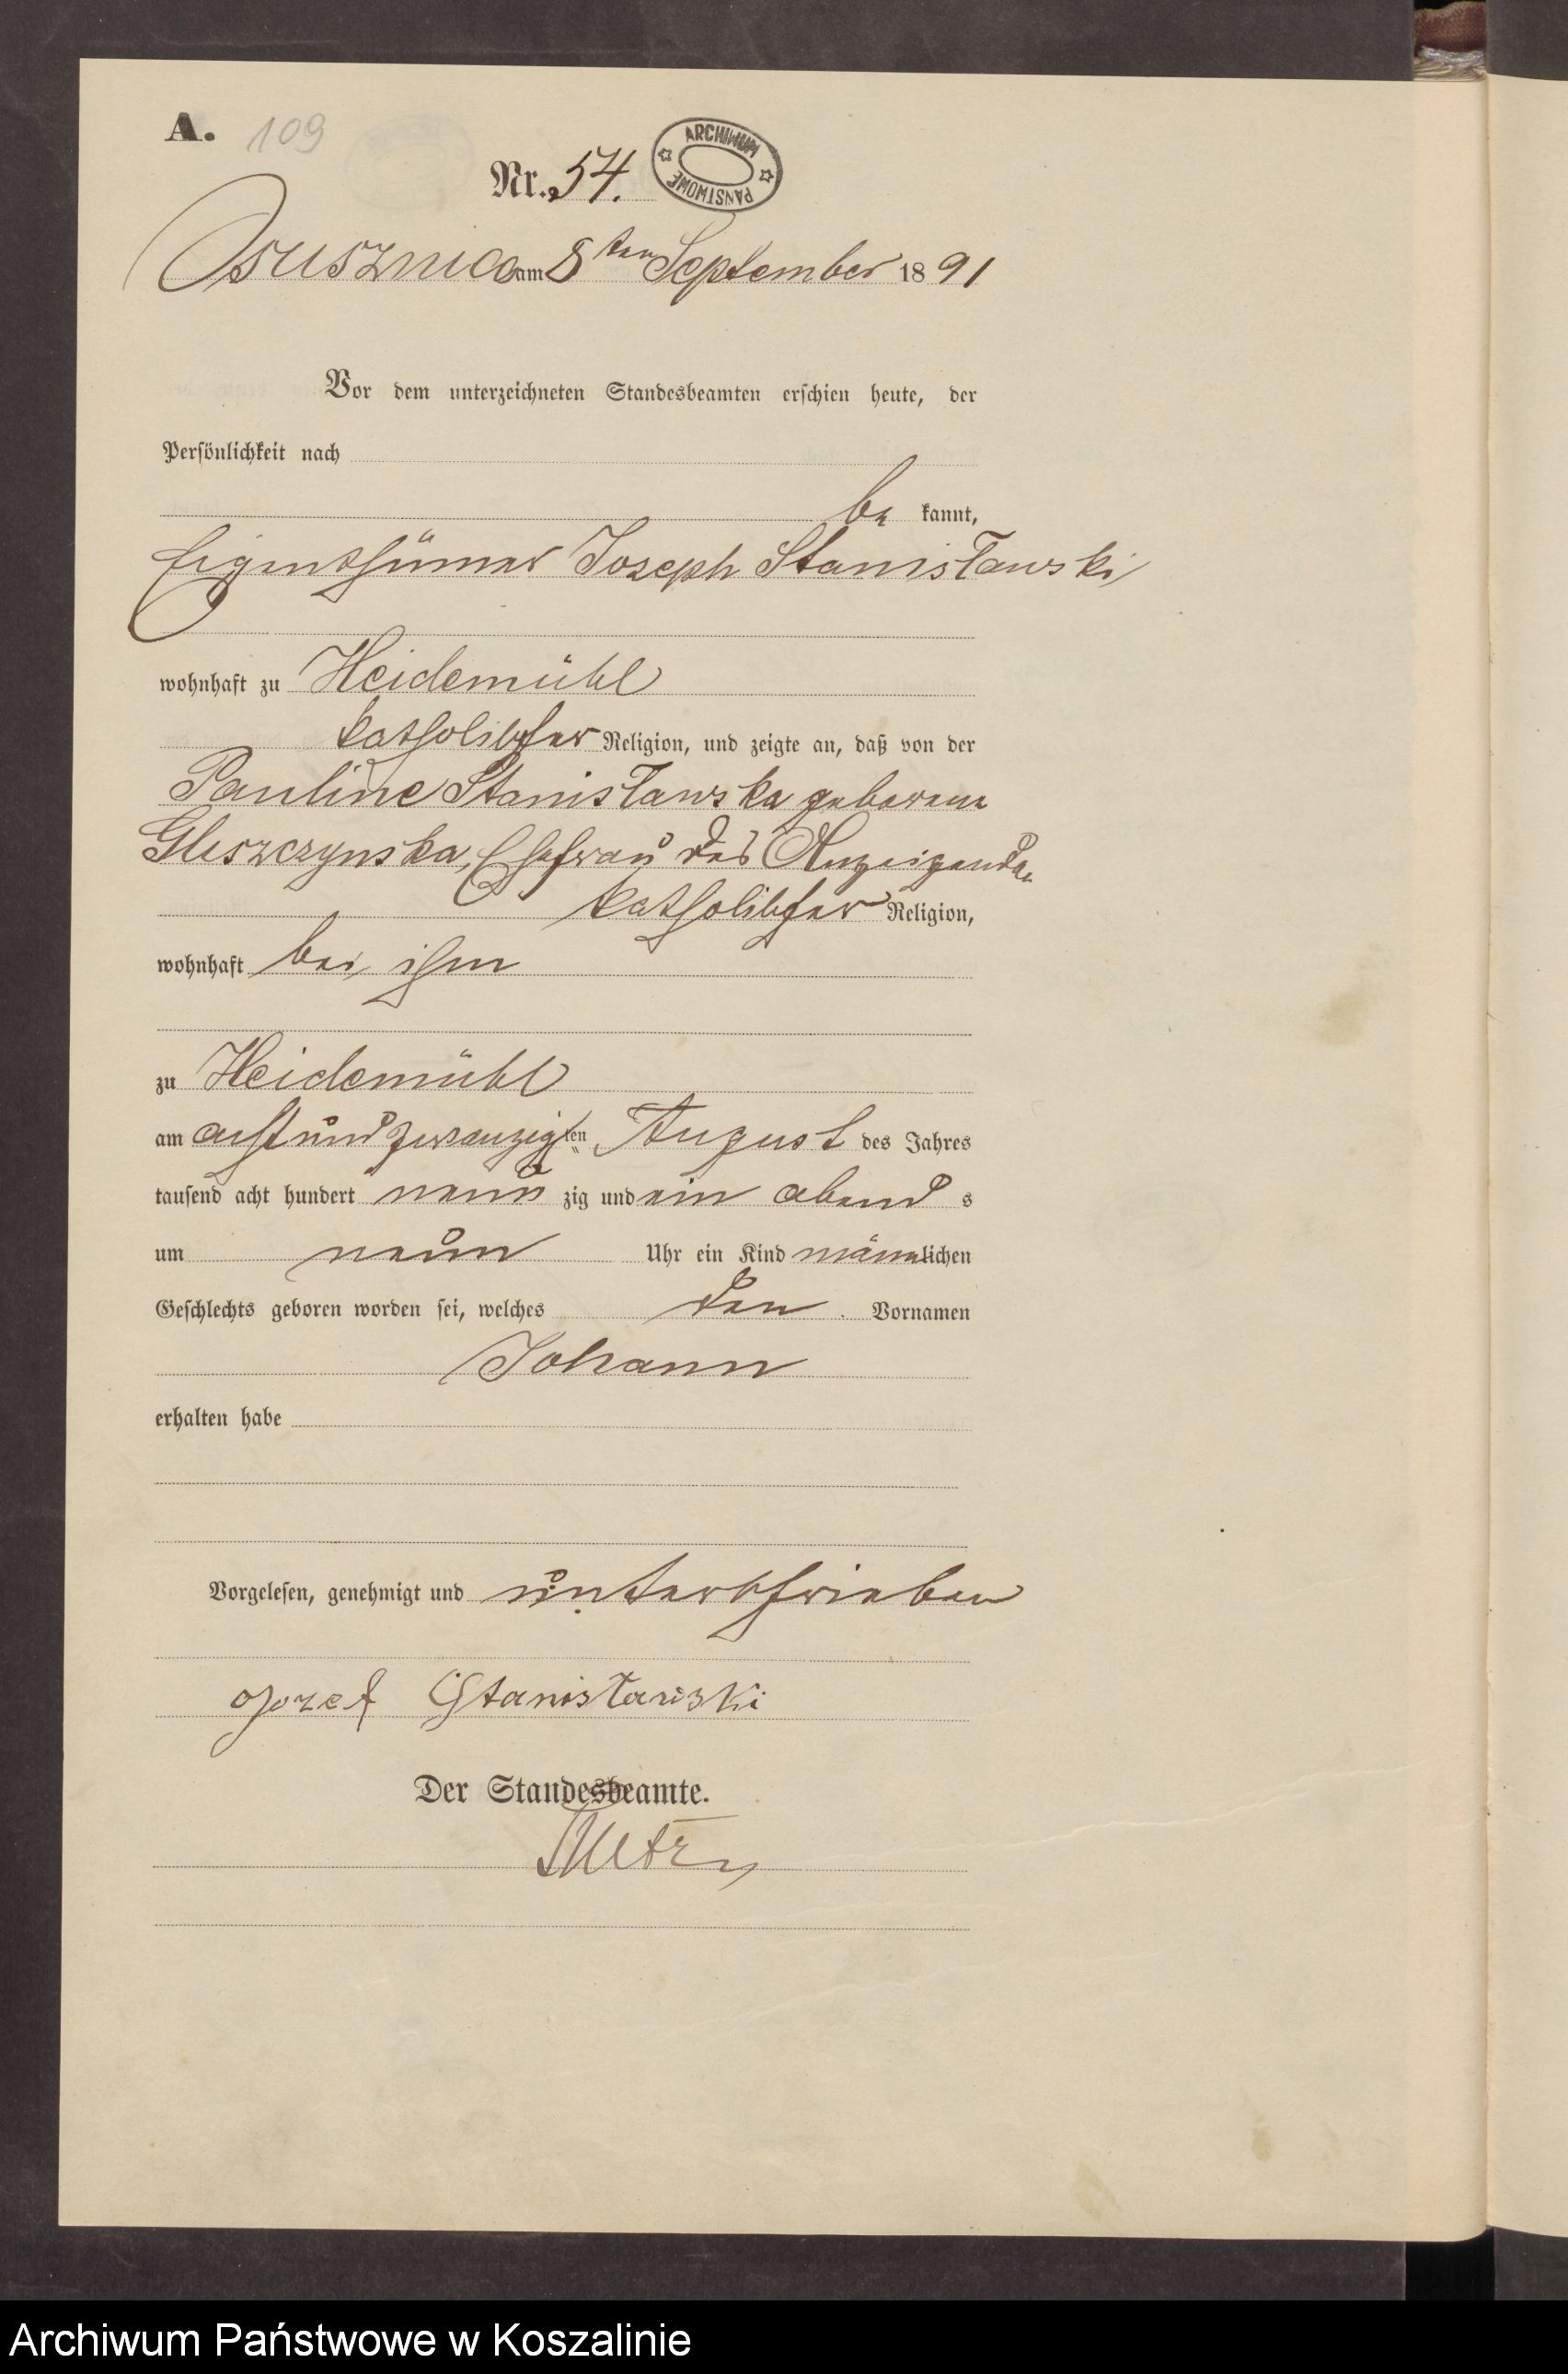 A. 109
Nr. 54.
ARCHIWUM PAŃSTWOWE
Osusznica am 8ten September 1891
Vor dem unterzeichneten Standesbeamten erschien heute, der
Persönlichkeit nach
be kannt,
Eigenthümer Joseph Stanisławski
wohnhaft zu Heidemühl
katholischer Religion, und zeigte an, daß von der
Pauline Stanisławska geborene
Gleszczynska, Ehefrau des Anzeigenden
katholischer Religion,
wohnhaft bei ihm
zu Heidemühl
am achtundzwanzigten August des Jahres
tausend acht hundert neun zig und ein abend s
um neun Uhr ein Kind männlichen
Geschlechts geboren worden sei, welches den Vornamen
Johann
erhalten habe
Vorgelesen, genehmigt und unterschrieben
Jozef Stanisławski
Der Standesbeamte.
Archiwum Państwowe w Koszalinie